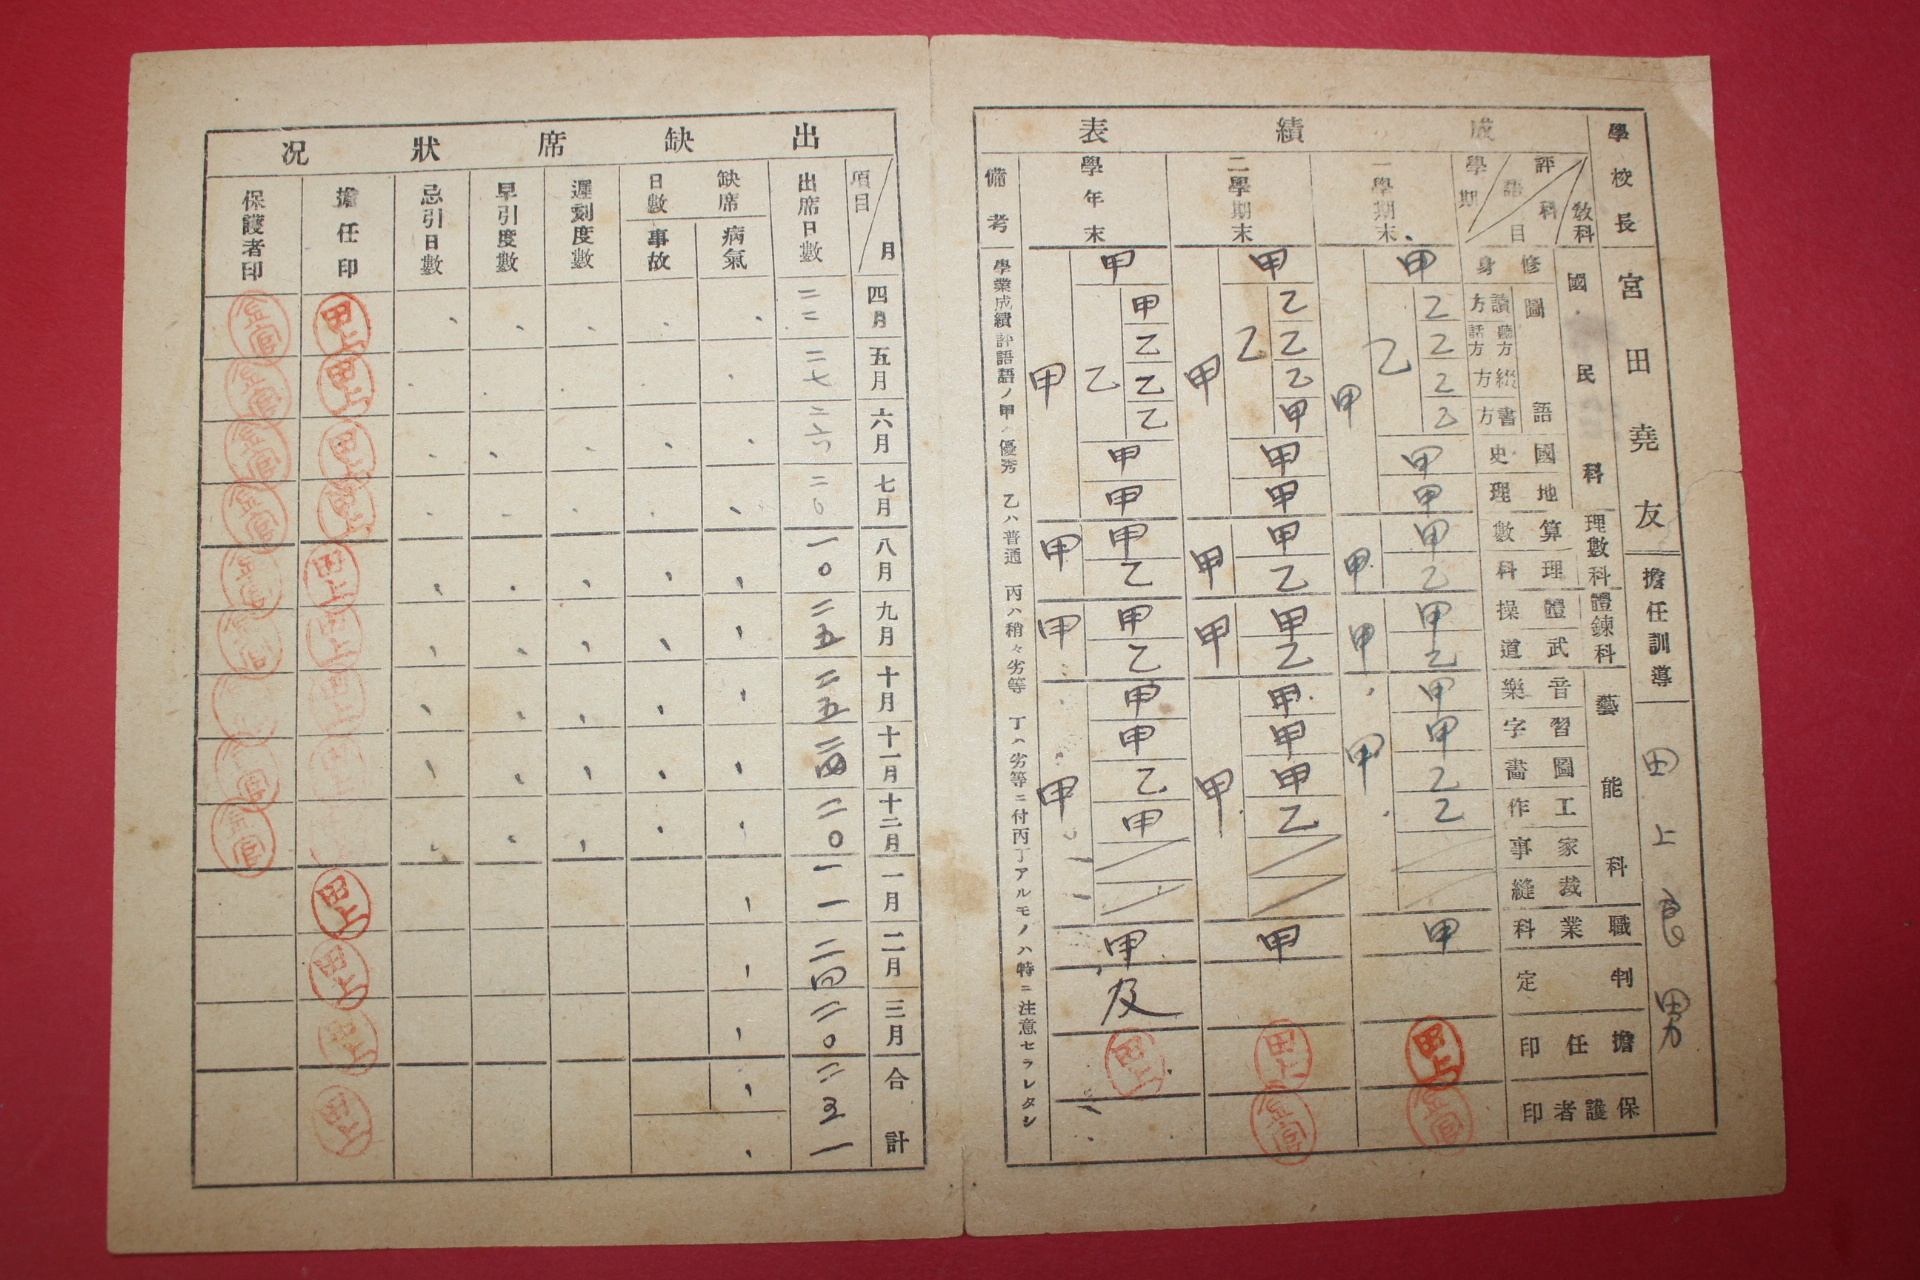 學校長 宮田堯友 擔任訓導 田上良男
成績表
教科 評語 科目 學期
國民科 理數科 體鍊科 藝能科 職業科 判定 擔任印 保護者印
修身 國語 讀方 聽方話方 綴方 書方 國史 地理 算數 理科 體操 武道 音樂 習字 圖畵 工作 家事 裁縫
一學期末 甲 乙 乙 乙 乙 乙 甲 甲 甲 甲 乙 甲 甲 乙 甲 甲 甲 乙 乙 甲 甲
田上
二學期末 甲 乙 乙 乙 甲 乙 甲 甲 甲 甲 乙 甲 甲 乙 甲 甲 甲 甲 乙 甲 甲
田上
學年末 甲 甲 乙 乙 乙 乙 甲 甲 甲 甲 乙 甲 甲 乙 甲 甲 甲 乙 甲 甲 甲 及
田上
備考 學業成績評語ノ甲ハ優秀 乙ハ普通 丙ハ稍々劣等 丁ハ劣等ニ付丙丁アルモノハ特ニ注意セラレタシ
出缺席狀况
項目 月 四月 五月 六月 七月 八月 九月 十月 十一月 十二月 一月 二月 三月 合計
出席日數 二二 二七 二六 二〇 一〇 二五 二五 二四 二〇 一一 二四 二〇 二三一
缺席日數 病氣 事故
遲刻度數
早引度數
忌引日數
擔任印 田上 田上 田上 田上 田上 田上 田上 田上 田上 田上 田上 田上
保護者印